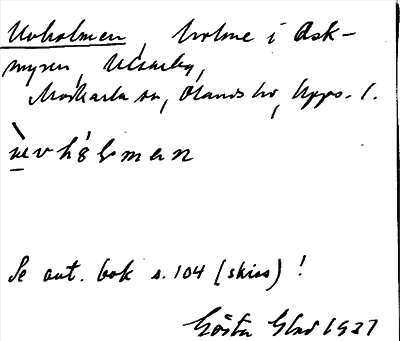 Uvholmen, holme i Ask-
myren, Utsarby,
Morkarla sn, Olands hd, Upps. l.
ùvhólmen
Se ant. bok s. 104 (skiss)!
Gösta Glad 1937